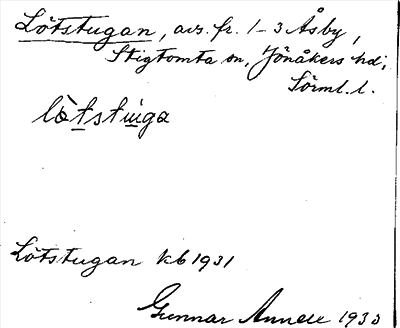 Lötstugan, avs. fr. 1-3 Åsby,
Stigtomta sn, Jönåkers hd,
Sörml. l.
lötstuga
Lötstugan kb 1931
Gunnar 1933